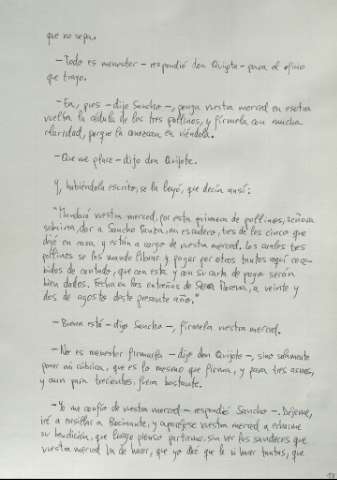 que no sepa.
—Todo es menester —respondió don Quijote— para el oficio
que trayo.
—Ea, pues —dijo Sancho—, ponga vuestra merced en esotra
vuelta la cédula de los tres pollinos, y fírmela con mucha
claridad, porque la conozcan en viéndola.
—Que me place —dijo don Quijote.
Y, habiéndola escrito, se la leyó, que decía ansí:
"Mandará vuestra merced, por esta primera de pollinos, señora
sobrina, dar a Sancho Panza, mi escudero, tres de los cinco que
dejé en casa y están a cargo de vuestra merced. Los cuales tres
pollinos se los mando librar y pagar por otros tantos aquí rece-
bidos de contado, que con esta y con su carta de pago serán
bien dados. Fecha en las entrañas de Sierra Morena, a veinte y
dos de agosto deste presente año."
—Buena está —dijo Sancho—, fírmela vuestra merced.
—No es menester firmarla —dijo don Quijote—, sino solamente
poner mi rúbrica, que es lo mesmo que firma, y para tres asnos,
y aun para trecientos, fuera bastante.
—Yo me confío de vuestra merced —respondió Sancho—. Déjeme,
iré a ensillar a Rocinante, y aparéjese vuestra merced a echarme
su bendición, que luego pienso partirme, sin ver las sandeces que
vuestra merced ha de hacer, que yo diré que le vi hacer tantas, que